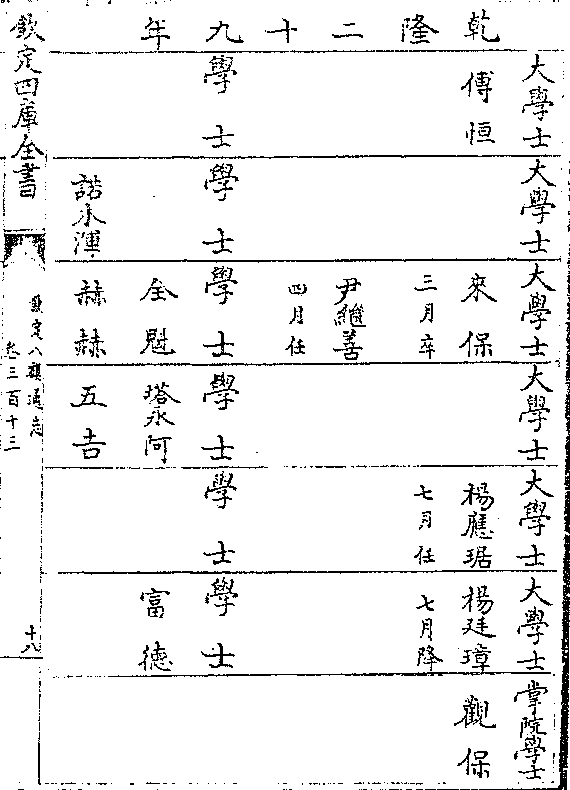 乾隆二十九年
大學士
傅恒
學士
大學士
學士
諾木渾
大學士
來保
三月卒
尹繼善
四月任
學士
全魁
赫赫
大學士
學士
塔永阿
五吉
大學士
楊應琚
七月任
學士
大學士
楊廷璋
七月降
學士
富德
掌院學士
觀保
欽定四庫全書
欽定八旗通志
卷三百十三
十八